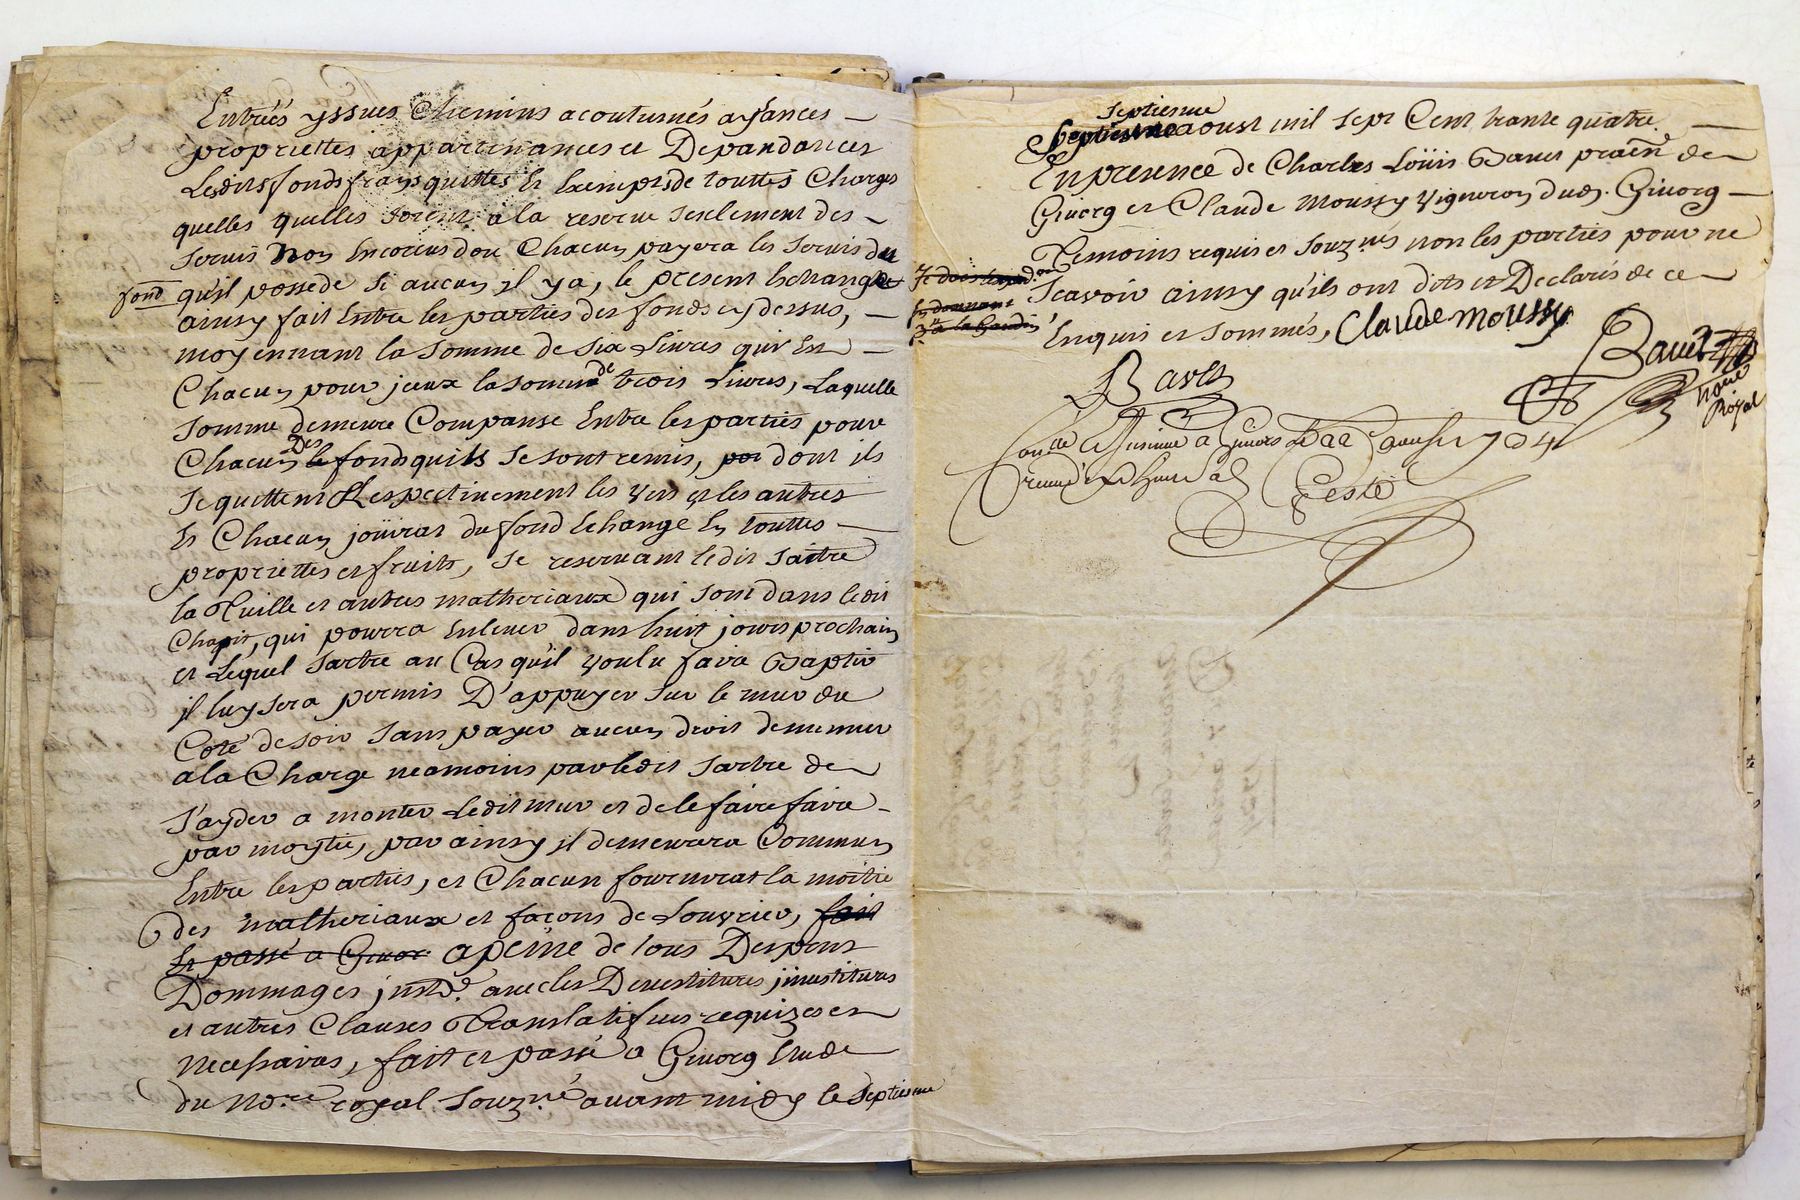 Entréés yssues Chemins acoutumés aysances
propriettés appartenances et Depandances
Lesdits fonds frans quittes Et Exempts de touttes Charges
quelles quelles soient a la reserve seulement des
servis Non Encorcus dou Chacun payera les servis du
fond qu'il possede si aucun il y a, le present Echange
ainsy fait Entre les parties des fonds cy dessus,
moyennant la somme de six Livres qui Est
Chacun pour jeux la somme de trois Livres, Laquelle
somme demeure Compansé Entre les parties pour
Chacun Des le fonds quils se sont remis, dont ils
se quittent Respectivement les vns et les autres
Et Chacun joüirat du fond Echangé En touttes
propriettes et fruits, se reservant ledit sartre
la Tuille et autres matheriaux qui sont dans ledit
Chapit, qui pourra Enlever dans huit jours prochain
et Lequel sartre au Cas qu'il voulu faire Baptir
il luy sera permis D'appuyer sur le mur du
Coté de soir sans payer aucun droit de memur
a la Charge neamoins par ledit sartre de
s'ayder a monter Ledit mur et de le faire faire
par moytié, par ainsy il demeurera Commun
Entre les parties, et Chacun fournirat la moitié
des matheriaux et façons de Louvrier, fait
Et passé a Givor apeine de tous Despens
Dommages jntd. avec les Devestitures jnvestitures
et autres Clauses Translatifves requizes et
necessaires, fait et passé a Givorg Etude
du No.re royal souz.né avant midy le septiesme
septiesme
Septiesme aoust mil sept Cent trante quatre
En presence de Charles Loüis Baver praën de
Givorg et Claude Moussy vigneron dud. Givorg
Temoins requis et souz.nés non les parties pour ne
scavoir ainsy qu'ils ont dits et Declarés de ce
Enquis et sommés, Claude moussy
Baver
Baver
No.re
Royal
a Givors Le aoust 1734
Teste